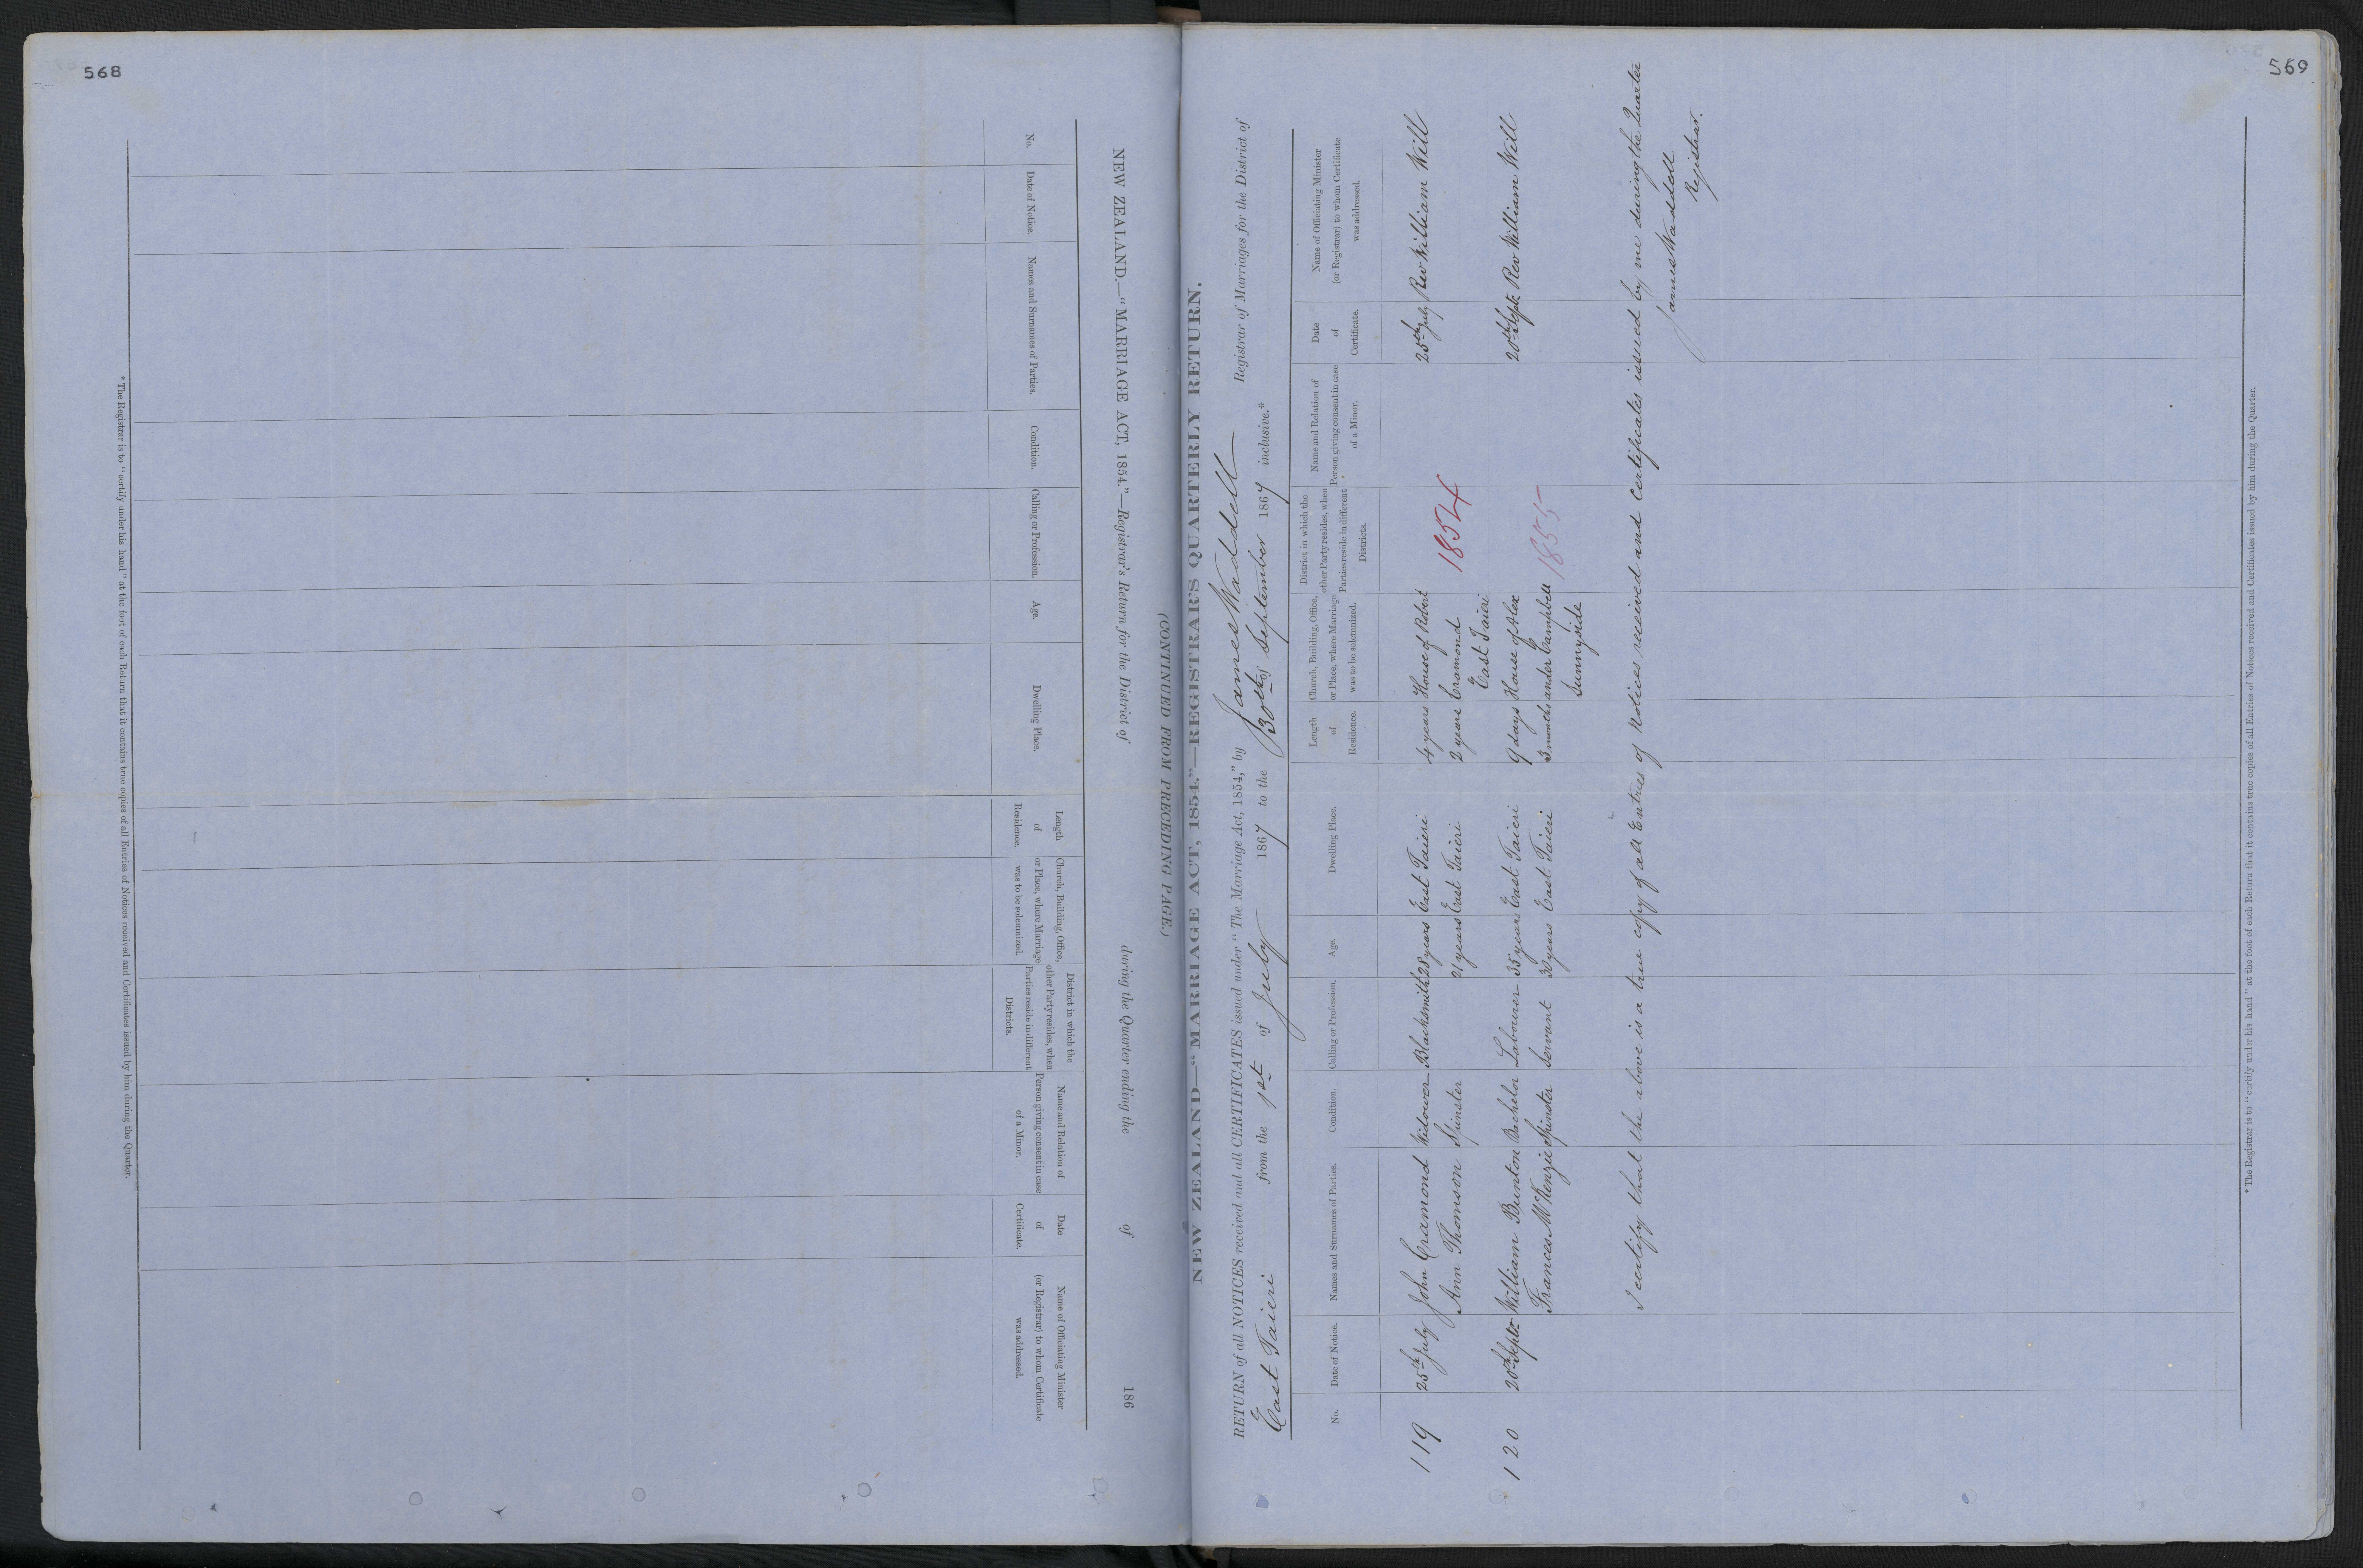 568
NEW ZEALAND.—"MARRIAGE ACT, 1854."—Registrar's Return for the District of during the Quarter ending the of 186
(CONTINUED FROM PRECEDING PAGE.)
No.
Date of Notice.
Names and Surnames of Parties.
Condition.
Calling or Profession.
Age.
Dwelling Place.
Length
of
Residence.
Church, Building, Office,
or Place, where Marriage
was to be solemnized.
District in which the
other Party resides, when
Parties reside in different
Districts.
Name and Relation of
Person giving consent in case
of a Minor.
Date
of
Certificate.
Name of Officiating Minister
(or Registrar) to whom Certificate
was addressed.
* The Registrar is to "certify under his hand" at the foot of each Return that it contains true copies of all Entries of Notices received and Certificates issued by him during the Quarter.
569
NEW ZEALAND—"MARRIAGE ACT, 1854."—REGISTRAR'S QUARTERLY RETURN.
RETURN of all NOTICES received and all CERTIFICATES issued under "The Marriage Act, 1854," by James Waddell Registrar of Marriages for the District of
East Taieri from the 1st of July 1867 to the 30th of September 1867 inclusive.*
No.
Date of Notice.
Names and Surnames of Parties.
Condition.
Calling or Profession.
Age.
Dwelling Place.
Length
of
Residence.
Church, Building, Office,
or Place, where Marriage
was to be solemnized.
District in which the
other Party resides, when
Parties reside in different
Districts.
Name and Relation of
Person giving consent in case
of a Minor.
Date
of
Certificate.
Name of Officiating Minister
(or Registrar) to whom Certificate
was addressed.
119 25th July John Cramond Widower Blacksmith 28 years East Taieri 4 years House of Robert 25th July Rev William Will
Ann Thomson Spinster 21 years East Taieri 2 years Cramond 1854
East Taieri
120 20th Septr William Bunton Bachelor Labourer 35 years East Taieri 9 days House of Alex 20th Septr Rev William Will
Frances McKenzie Spinster Servant 30 years East Taieri 3 months ander Campbell 1855
Sunnyside
I certify that the above is a true copy of all Entries of Notices received and Certificates issued by me during the Quarter
James Waddell
Registrar.
* The Registrar is to "certify under his hand" at the foot of each Return that it contains true copies of all Entries of Notices received and Certificates issued by him during the Quarter.